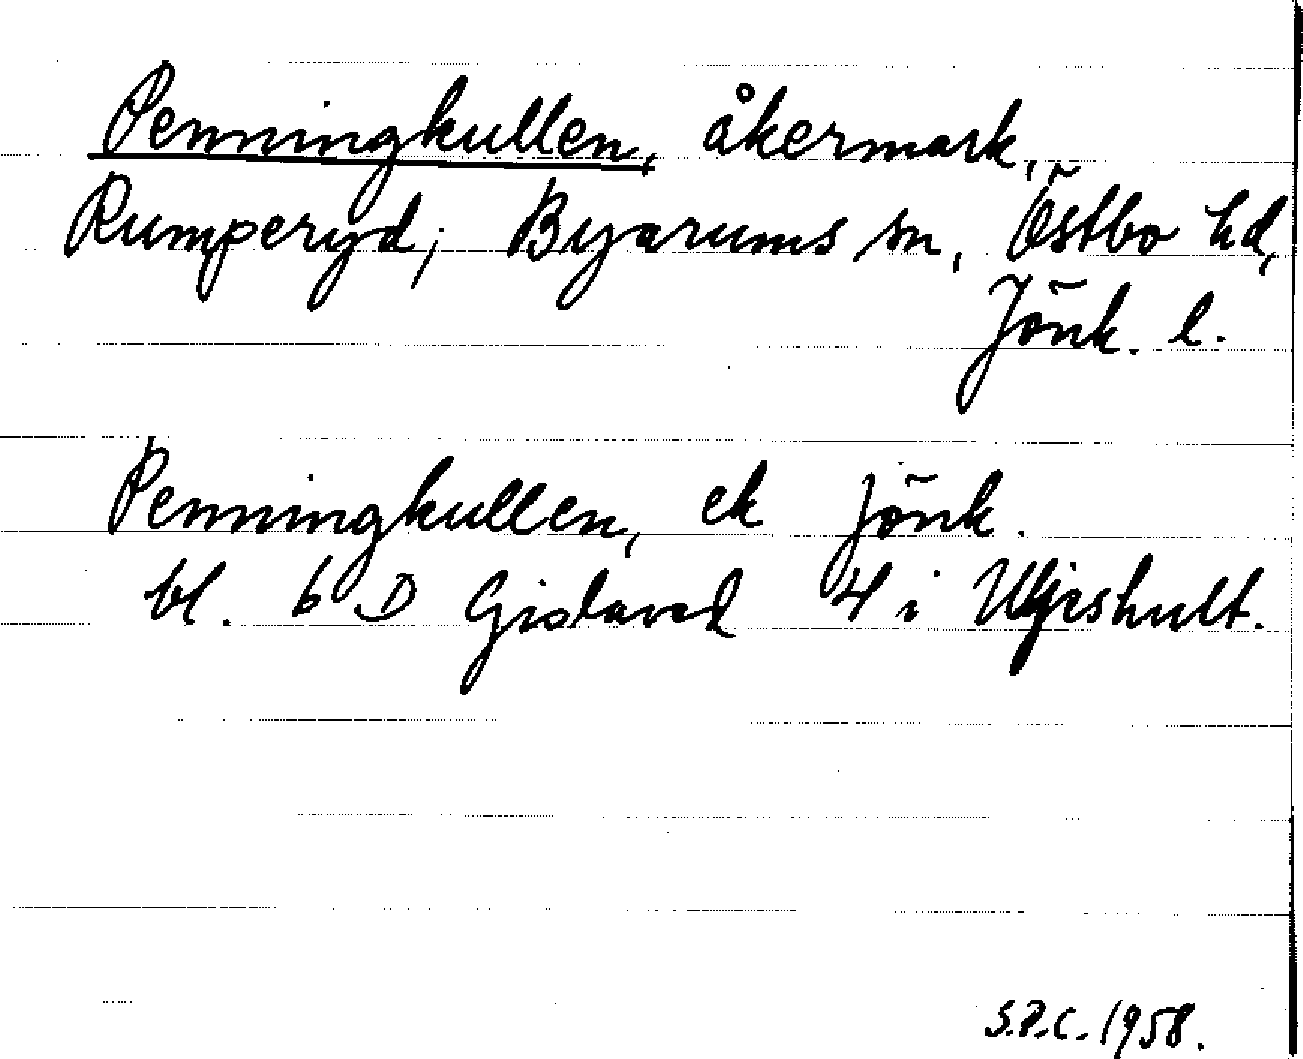 Penningkullen, åkermark,
Rumperyd, Byarums sn, Östbo hd,
Jönk. l.
Penningkullen, ek Jönk.
bl. 6 D Gislaved 4 i
S.P.C. 1958.